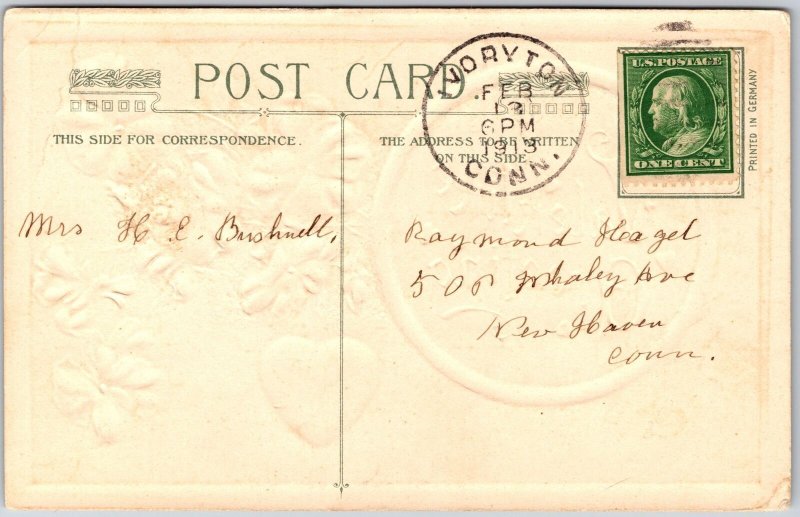 POST CARD
THIS SIDE FOR CORRESPONDENCE.
THE ADDRESS TO BE WRITTEN
ON THIS SIDE.
IVORYTON
FEB
6 PM
1913
CONN.
U.S. POSTAGE
ONE CENT
PRINTED IN GERMANY
Mrs H. E. Bushnell,
Raymond Hagel
50 Whaley Ave
New Haven
Conn.